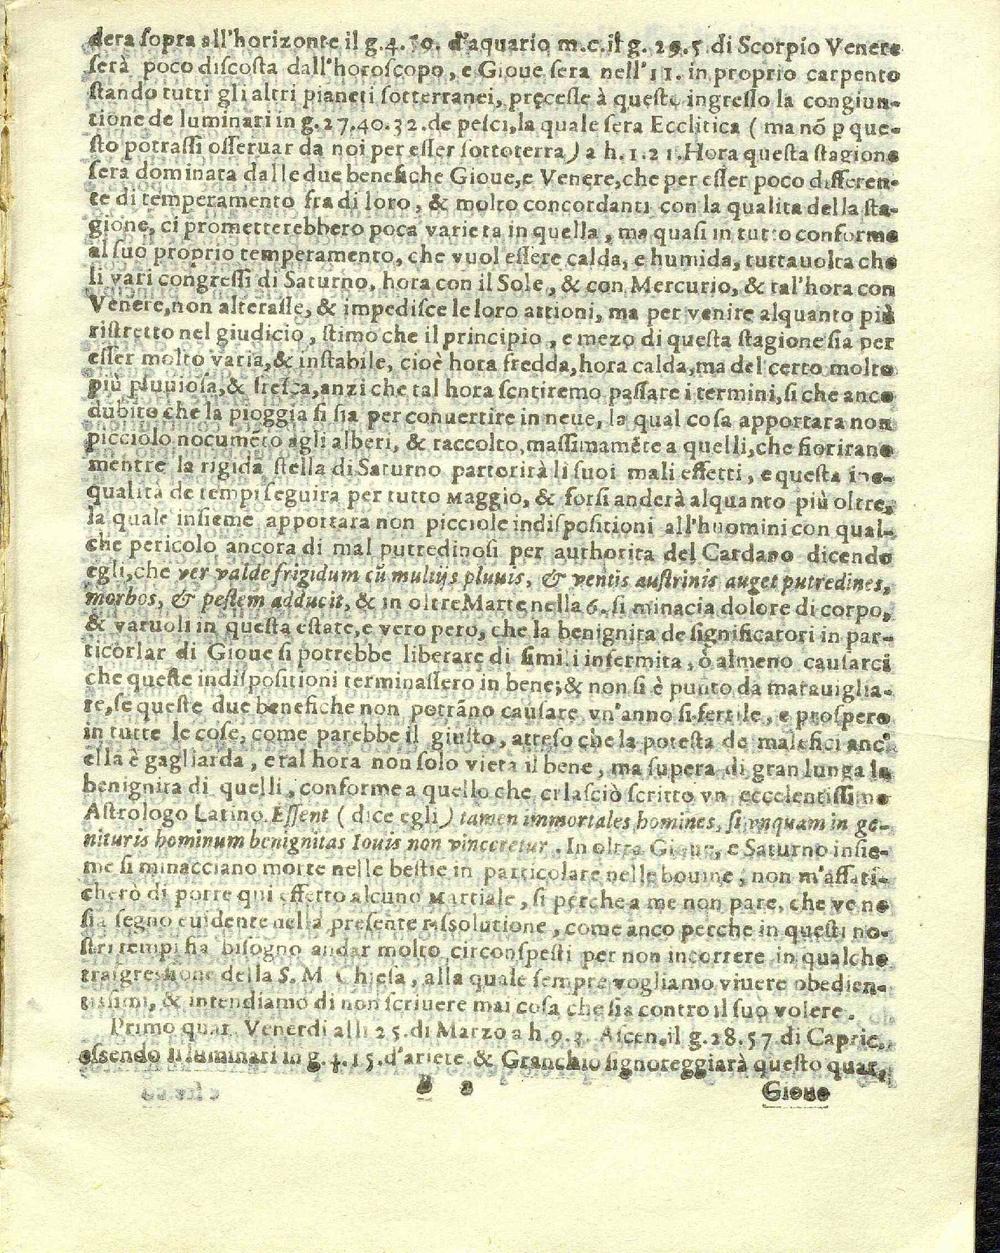 dera sopra all'horizonte il g.4.50. d'aquario m.c.il g. 29.5.di Scorpio Venere
serà poco discosta dall'horoscopo, e Gioue sera nell'11. in proprio carpento
stando tutti gli altri pianeti sotterranei, precesse à questo ingresso la congiun-
tione de luminari in g.27.40.32.de pesci,la quale sera Ecclitica ( ma nõ p que-
sto potrassi osseruar da noi per esser sottoterra) a h.1.21.Hora questa stagione
sera dominata dalle due benefiche Gioue,e Venere,che per esser poco differen-
te di temperamento fra di loro, & molto concordanti con la qualita della sta-
gione, ci prometterebbero poca varieta in quella, ma quasi in tutto conforme
al suo proprio temperamento, che vuol essere calda, e humida, tuttauolta che
li vari congressi di Saturno, hora con il Sole, & con Mercurio, & tal'hora con
Venere,non alterasse, & impedisce le loro attioni, ma per venire alquanto più
ristretto nel giudicio, stimo che il principio, e mezo di questa stagione sia per
esser molto varia,& instabile, cioè hora fredda,hora calda,ma del certo molto
più piuuiosa,& fresca,anzi che tal hora sentiremo passare i termini,si che anco
dubito che la pioggia si sia per conuertire in neue, la qual cosa apportara non
picciolo nocumẽto agli alberi, & raccolto,massimamẽte a quelli,che fiorirano
mentre la rigida stella di Saturno partorirà li suoi mali effetti, e questa ine-
qualità de tempi seguira per tutto Maggio, & forsi anderà alquanto più oltre,
la quale insieme apportara non picciole indispositioni all'huomini con qual-
che pericolo ancora di mal putredinosi per authorita del Cardano dicendo
egli,che ver valde frigidum cũ multijs pluuis, & ventis austrinis auget putredines,
morbos, & pestem adducit, & in oltre Marte nella 6. si minacia dolore di corpo,
& varuoli in questa estate,e vero pero, che la benignita de significatori in par-
ticorlar di Gioue si potrebbe liberare di simili infermita, ò almeno causarci
che queste indispositioni terminassero in bene;& non si è punto da marauiglia-
re,se queste due benefiche non potrãno causare vn'anno si fertile, e prospero
in tutte le cose, come parebbe il giusto, atteso che la potesta de malefici anc'
ella è gagliarda, e tal hora non solo vieta il bene, ma supera di gran lunga la
benignita di quelli, conforme a quello che ci lasciò scritto vn eccelentissimo
Astrologo Latino. Essent ( dice egli) tamen immortales homines, si vnquam in ge-
nituris hominum benignitas Iouis non vinceretur. In oltre Gioue, e Saturno insie-
me si minacciano morte nelle bestie in particolare nelle bouine, non m'affati-
cherò di porre qui effetto alcuno Martiale, si perche a me non pare, che ve ne
sia segno euidente nella presente rissolutione, come anco perche in questi no-
stri tempi fia bisogno andar molto circonspesti per non incorrere in qualche
trasgressione della S. M. Chiesa, alla quale sempre vogliamo viuere obedien-
tissimi, & intendiamo di non scriuere mai cosa che sia contro il suo volere.
Primo quar. Venerdi alli 25.di Marzo a h.9.3. Ascen.il g.28.57 di Capric.
essendo li luminari in g.4.15.d'ariete & Granchio signoreggiarà questo quar,
2
Gioue